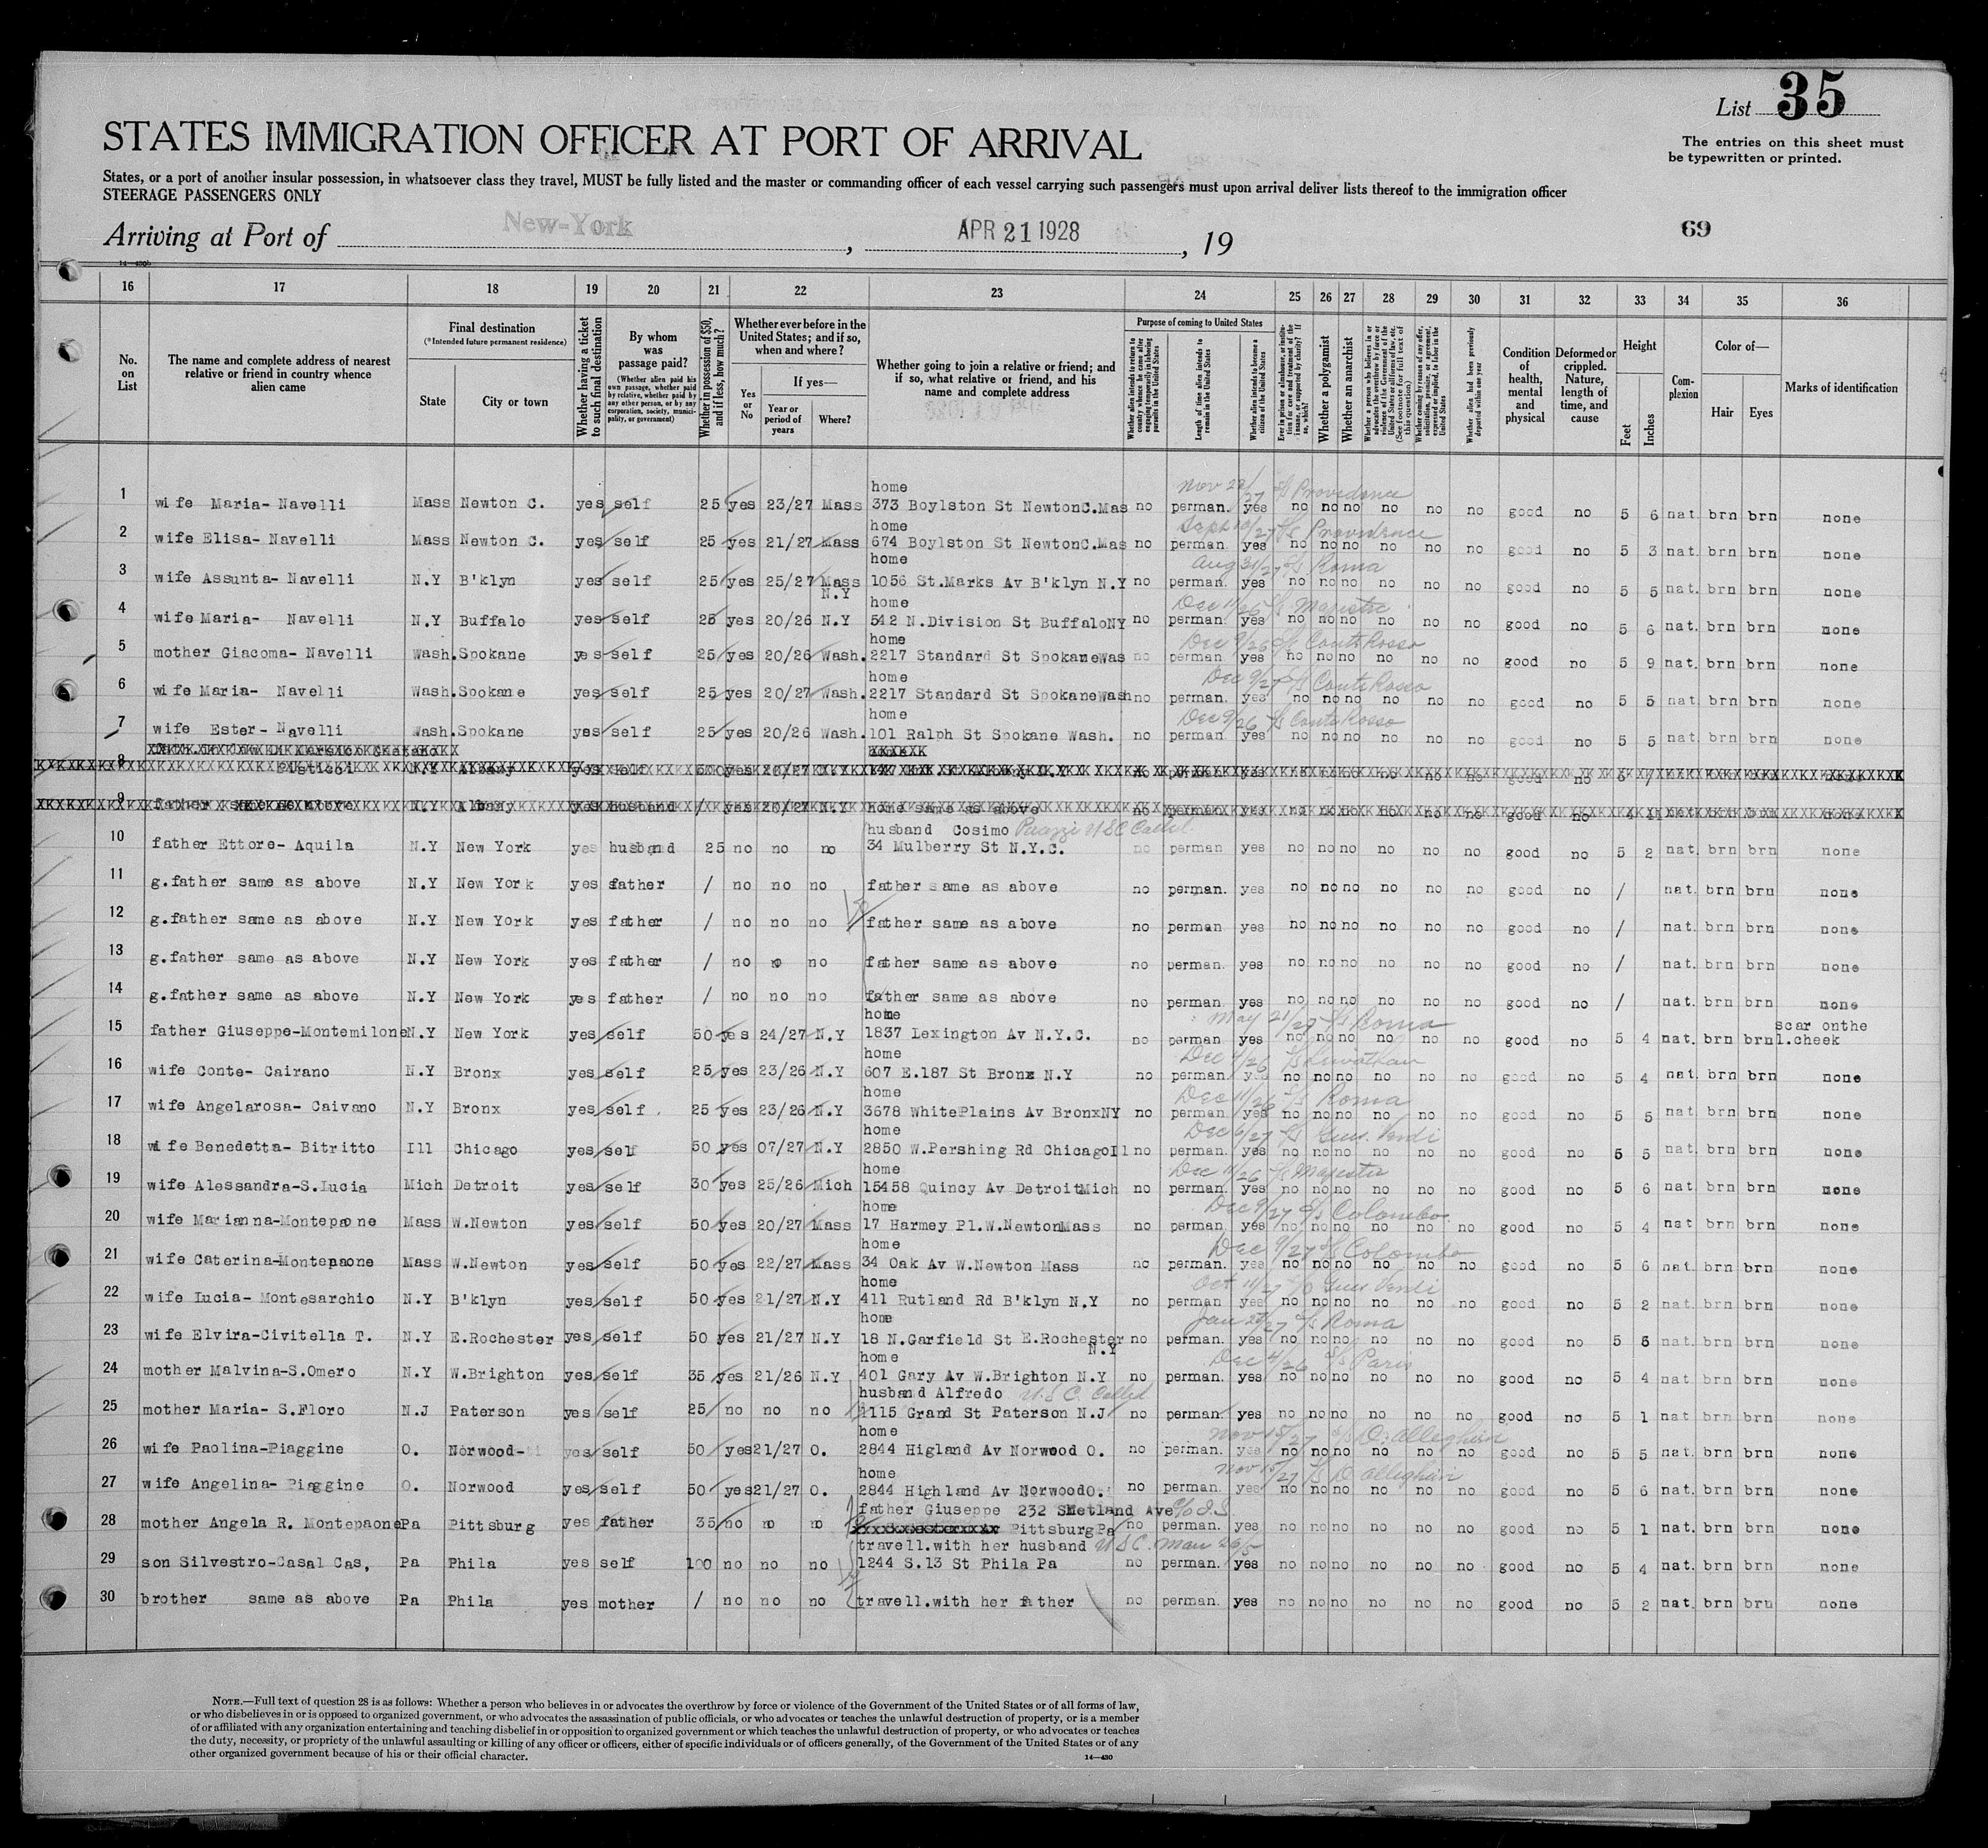 List 35
The entries on this sheet must
be typewritten or printed.
STATES IMMIGRATION OFFICER AT PORT OF ARRIVAL
States, or a port of another insular possession, in whatsoever class they travel, MUST be fully listed and the master or commanding officer of each vessel carrying such passengers must upon arrival deliver lists thereof to the immigration officer
STEERAGE PASSENGERS ONLY
Arriving at Port of New-York, APR 21 1928, 19
69
16 17 18 19 20 21 22 23 24 25 26 27 28 29 30 31 32 33 34 35 36
No. on List
The name and complete address of nearest relative or friend in country whence alien came
Final destination (*Intended future permanent residence)
State
City or town
Whether having a ticket to such final destination
By whom was passage paid?
(Whether alien paid his own passage, whether paid by relative, whether paid by any other person, or by any corporation, society, municipality, or government)
Whether in possession of $50, and if less, how much?
Whether ever before in the United States; and if so, when and where?
Yes or No
If yes—
Year or period of years
Where?
Whether going to join a relative or friend; and if so, what relative or friend, and his name and complete address
Purpose of coming to United States
Length of time alien intends to remain in the United States
Whether alien intends to become a citizen of the United States
Whether a polygamist
Whether an anarchist
Whether alien had been previously deported within one year
Condition of health, mental and physical
Deformed or crippled. Nature, length of time, and cause
Height
Feet
Inches
Complexion
Color of—
Hair
Eyes
Marks of identification
home Nov 22/27 S/S Providence
1 wife Maria- Navelli Mass Newton C. yes self 25 yes 23/27 Mass 373 Boylston St NewtonC.Mas no perman. yes no no no no no no good no 5 6 nat. brn brn none
home Sept 10/27 S/S Providence
2 wife Elisa- Navelli Mass Newton C. yes self 25 yes 21/27 Mass 674 Boylston St NewtonC.Mas no perman. yes no no no no no no good no 5 3 nat. brn brn none
home Aug 31/27 S/S Roma
3 wife Assunta- Navelli N.Y B'klyn yes self 25 yes 25/27 Mass N.Y 1056 St.Marks Av B'klyn N.Y no perman. yes no no no no no no good no 5 5 nat. brn brn none
home Dec 11/26 S/S Majestic
4 wife Maria- Navelli N.Y Buffalo yes self 25 yes 20/26 N.Y 542 N.Division St BuffaloNY no perman. yes no no no no no no good no 5 6 nat. brn brn none
home Dec 9/26 S/S Conte Rosso
5 mother Giacoma- Navelli Wash. Spokane yes self 25 yes 20/26 Wash. 2217 Standard St SpokaneWas no perman yes no no no no no no good no 5 9 nat. brn brn none
home Dec 9/27 S/S Conte Rosso
6 wife Maria- Navelli Wash. Spokane yes self 25 yes 20/27 Wash. 2217 Standard St SpokaneWash no perman. yes no no no no no no good no 5 5 nat. brn brn none
home Dec 9/26 S/S Conte Rosso
7 wife Ester- Navelli Wash. Spokane yes self 25 yes 20/26 Wash. 101 Ralph St Spokane Wash. no perman yes no no no no no no good no 5 5 nat. brn brn none
8 Pisticci N.Y Albany yes self
9 father same as above N.Y Albany yes husband / yes 20/27 N.Y home same as above no perman yes no no no no no no good no
husband Cosimo
10 father Ettore- Aquila N.Y New York yes husband 25 no no no 34 Mulberry St N.Y.C. no perman yes no no no no no no good no 5 2 nat. brn brn none
11 g.father same as above N.Y New York yes father / no no no father same as above no perman. yes no no no no no no good no / nat. brn bru none
12 g.father same as above N.Y New York yes father / no no no father same as above no perman yes no no no no no no good no / nat. brn brn none
13 g.father same as above N.Y New York yes father / no no no father same as above no perman. yes no no no no no no good no / nat. brn brn none
14 g.father same as above N.Y New York yes father / no no no father same as above no perman. yes no no no no no no good no / nat. brn brn none
home May 21/27 S/S Roma scar onthe
15 father Giuseppe-Montemilone N.Y New York yes self 50 yes 24/27 N.Y 1837 Lexington Av N.Y.C. no perman yes no no no no no no good no 5 4 nat. brn brn l.cheek
home Dec 4/26 S/S Leviathan
16 wife Conte- Cairano N.Y Bronx yes self 25 yes 23/26 N.Y 607 E.187 St Bronx N.Y no perman. yes no no no no no no good no 5 4 nat. brn brn none
home Dec 11/26 S/S Roma
17 wife Angelarosa- Caivano N.Y Bronx yes self 25 yes 23/26 N.Y 3678 WhitePlains Av BronxNY no perman yes no no no no no no good no 5 5 nat. brn brn none
home Dec 6/27 S/S Gius. Verdi
18 wife Benedetta- Bitritto Ill Chicago yes self 50 yes 07/27 N.Y 2850 W.Pershing Rd ChicagoIl no perman. yes no no no no no no good no 5 5 nat. brn brn none
home Dec 11/26 S/S Majestic
19 wife Alessandra-S.Lucia Mich Detroit yes self 30 yes 25/26 Mich 15458 Quincy Av DetroitMich no perman. yes no no no no no no good no 5 6 nat. brn brn none
home Dec 9/27 S/S Colombo
20 wife Marianna-Montepaone Mass W.Newton yes self 50 yes 20/27 Mass 17 Harmey Pl.W.NewtonMass no perman. yes no no no no no no good no 5 4 nat brn brn none
home Dec 9/27 S/S Colombo
21 wife Caterina-Montepaone Mass W.Newton yes self 50 yes 22/27 Mass 34 Oak Av W.Newton Mass no perman. yes no no no no no no good no 5 6 nat. brn brn none
home Oct 11/27 S/S Gius Verdi
22 wife Lucia- Montesarchio N.Y B'klyn yes self 50 yes 21/27 N.Y 411 Rutland Rd B'klyn N.Y no perman yes no no no no no no good no 5 2 nat. brn brn none
home Jan 27 S/S Roma
23 wife Elvira-Civitella T. N.Y E.Rochester yes self 50 yes 21/27 N.Y 18 N.Garfield St E.Rochester N.Y no perman. yes no no no no no no good no 5 3 nat. brn brn none
home Dec 4/26 S/S Paris
24 mother Malvina-S.Omero N.Y W.Brighton yes self 35 yes 21/26 N.Y 401 Gary Av W.Brighton N.Y no perman. yes no no no no no no good no 5 4 nat. brn brn none
husband Alfredo U.S.C. Called
25 mother Maria- S.Floro N.J Paterson yes self 25 no no no 1115 Grand St Paterson N.J no perman. yes no no no no no no good no 5 1 nat brn brn none
home Nov 15/27 S/S D. Alleghieri
26 wife Paolina-Piaggine O. Norwood- yes self 50 yes 21/27 O. 2844 Higland Av Norwood O. no perman. yes no no no no no no good no 5 5 nat. brn brn none
home Nov 15/27 S/S D Alleghieri
27 wife Angelina- Piaggine O. Norwood yes self 50 yes 21/27 O. 2844 Highland Av NorwoodO. no perman. yes no no no no no no good no 5 6 nat. brn brn none
father Giuseppe 232 Shetland Ave
28 mother Angela R. Montepaone Pa Pittsburg yes father 35 no no no PittsburgPa no perman. yes no no no no no no good no 5 1 nat. brn brn none
travell.with her husband U S C.
29 son Silvestro-Casal Cas, Pa Phila yes self 100 no no no 1244 S.13 St Phila Pa no perman. yes no no no no no no good no 5 4 nat. brn brn none
30 brother same as above Pa Phila yes mother / no no no travell.with her father no perman. yes no no no no no no good no 5 2 nat. brn bru none
NOTE.—Full text of question 28 is as follows: Whether a person who believes in or advocates the overthrow by force or violence of the Government of the United States or of all forms of law,
or who disbelieves in or is opposed to organized government, or who advocates the assassination of public officials, or who advocates or teaches the unlawful destruction of property, or is a member
of or affiliated with any organization entertaining and teaching disbelief in or opposition to organized government or which teaches the unlawful destruction of property, or who advocates or teaches
the duty, necessity, or propriety of the unlawful assaulting or killing of any officer or officers, either of specific individuals or of officers generally, of the Government of the United States or of any
other organized government because of his or their official character.
14—430